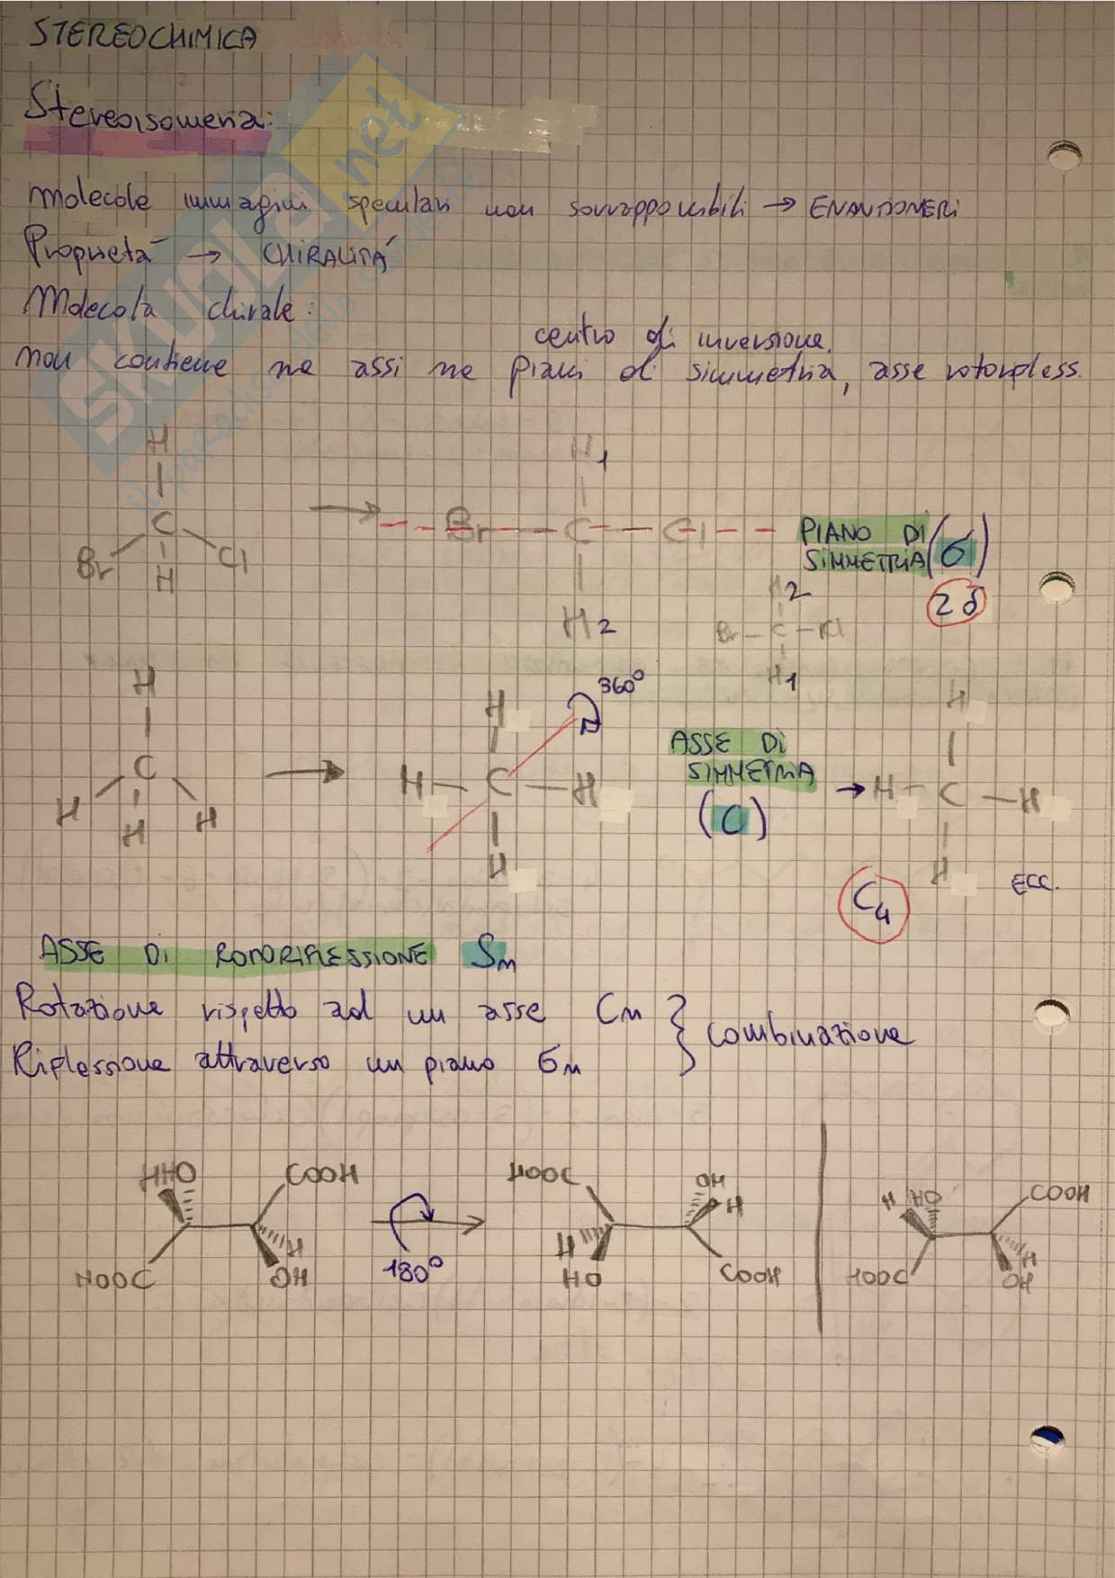 STEREOCHIMICA
Stereoisomeria:
Molecole immagini speculari non sovrapponibili → ENANTIOMERI
Proprietà → CHIRALITÁ
Molecola chirale:
centro di inversione.
non contiene ne assi ne piani di simmetria, asse rotorifless.
H
C
Br Cl
H
H1
Br C Cl
H2
PIANO DI
SIMMETRIA (σ)
2σ
H2
Br - C - Cl
H1
H
C
H H H
H
H - C - H
H
360°
ASSE DI
SIMMETRIA
(C)
H
H - C - H
H
ECC.
C4
ASSE DI ROTORIFLESSIONE Sn
Rotazione rispetto ad un asse Cn
Riflessione attraverso un piano σn
} combinazione
H HO COOH
HOOC OH H
180°
HOOC OH H
H HO COOH
H HO COOH
HOOC OH H